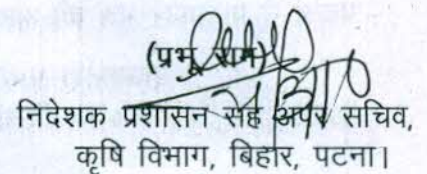 (प्रभु राम)
निदेशक प्रशासन सह अपर सचिव,
कृषि विभाग, बिहार, पटना।